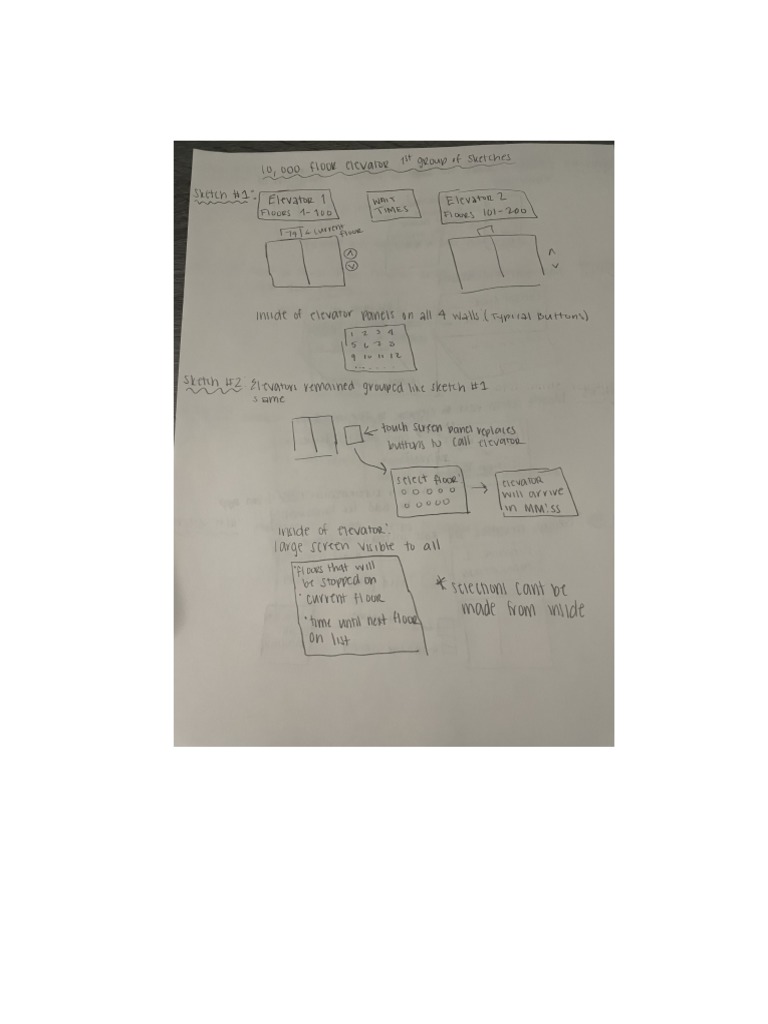 10,000 floor elevator 1st group of sketches
Sketch #1:
Elevator 1
Floors 1-100
WAIT
TIMES
Elevator 2
Floors 101-200
79 = current
floor
^
v
^
v
inside of elevator panels on all 4 walls (Typical Buttons)
1 2 3 4
5 6 7 8
9 10 11 12
......
Sketch #2: Elevators remained grouped like sketch #1
same
touch screen panel replaces
buttons to call elevator
select floor:
elevator
will arrive
in MM:SS
inside of elevator:
large screen visible to all
• floors that will
be stopped on
• current floor
• time until next floor
on list
* selections cant be
made from inside